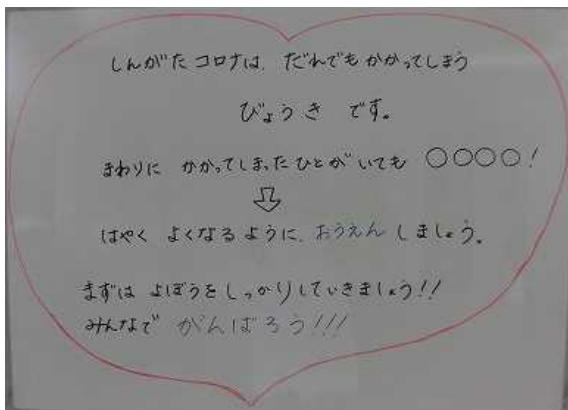 しんがたコロナは、だれでもかかってしまう
びょうき です。
まわりに かかってしまったひとがいても ○○○○!
⇩
はやく よくなるように、おうえん しましょう。
まずは よぼうをしっかりしていきましょう!!
みんなで がんばろう!!!